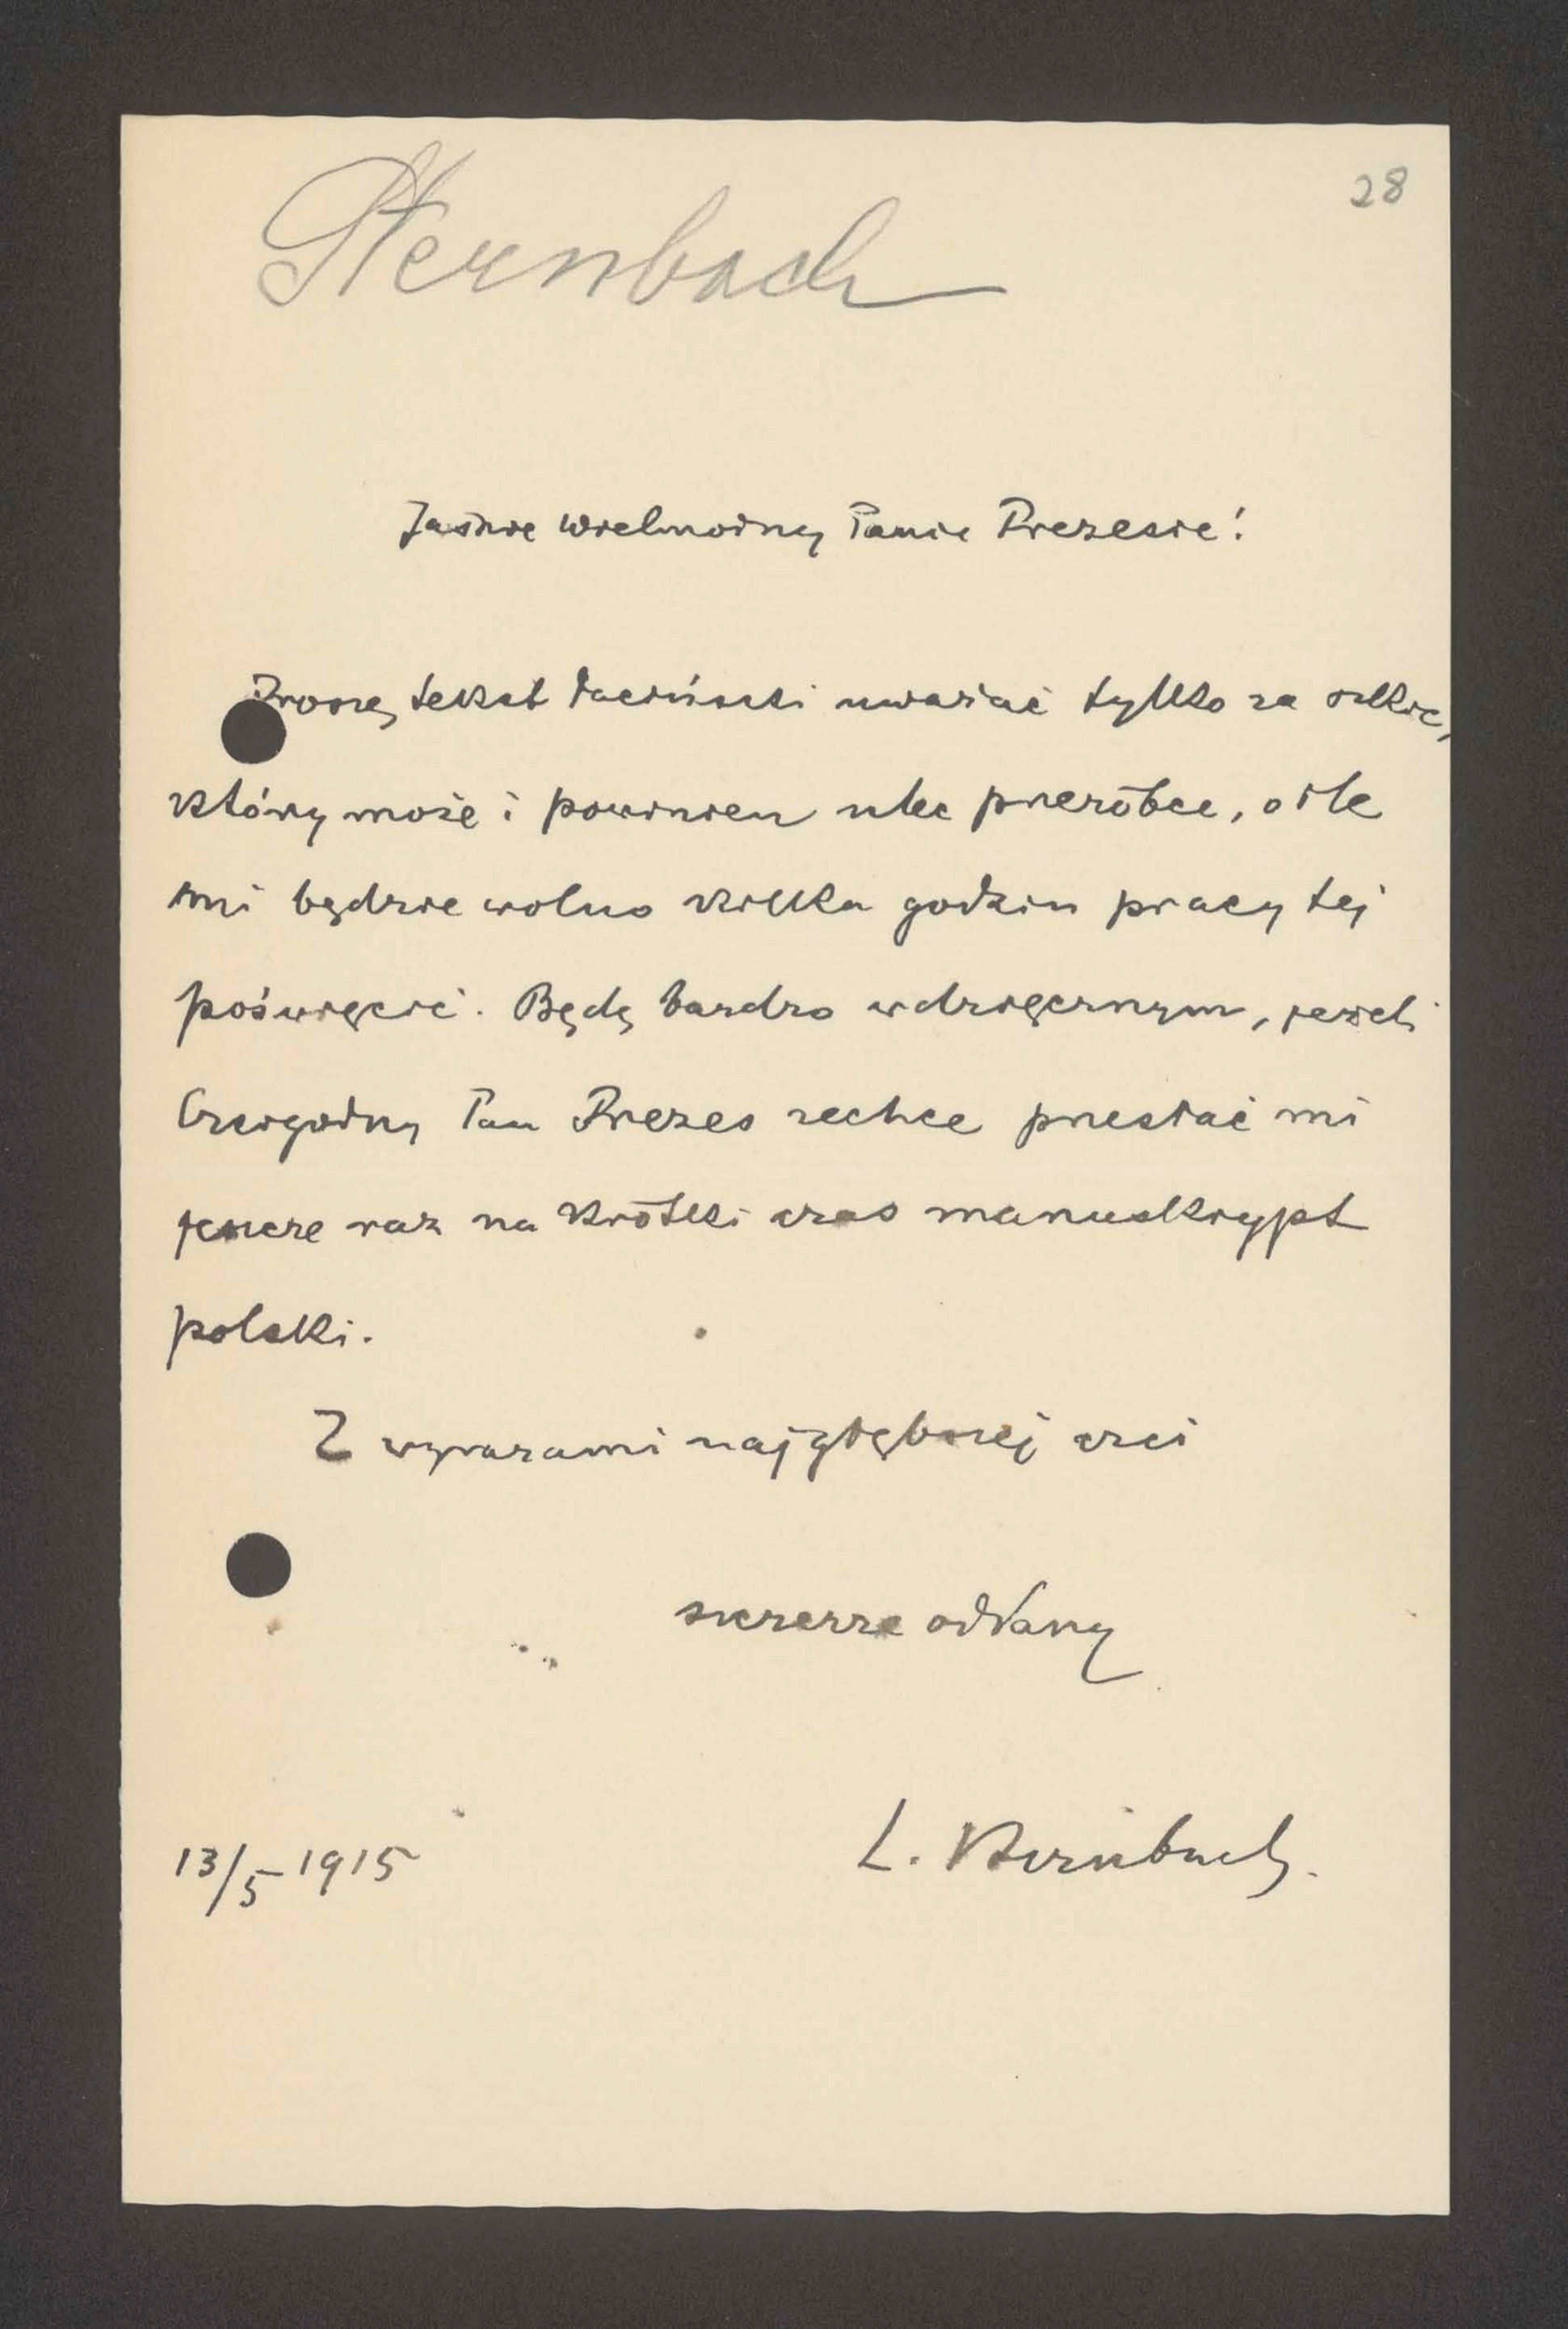 Sternbach
28
Jaśnie Wielmożny Panie Prezesie!
Proszę tekst łaciński uważać tylko za szkic,
który może i powinien uledz przeróbce, o ile
mi będzie wolno kilka godzin pracy tej
poświęcić. Będę bardzo wdzięcznym, jeżeli
Czcigodny Pan Prezes zechce przesłać mi
jeszcze raz na krótki czas manuskrypt
polski.
Z wyrazami najgłębszej czci
szczerze oddany
13/5 1915
L. Sternbach.